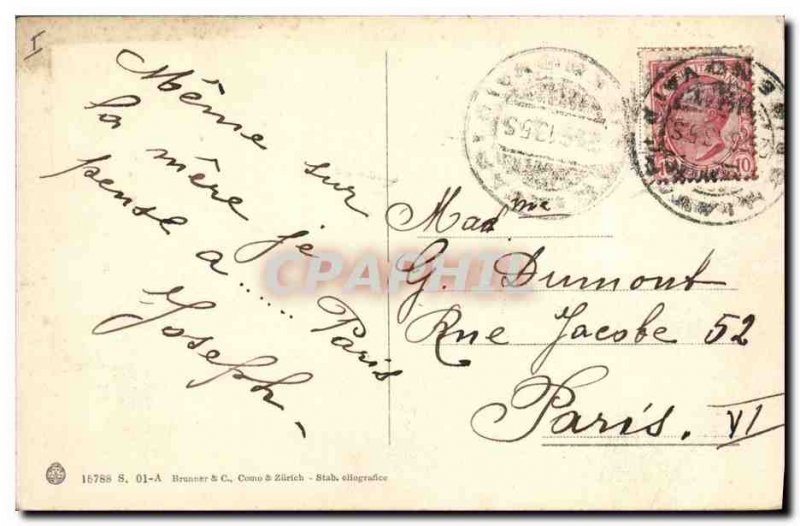 I
Même sur
la mère je
pense a...... Paris
Joseph -
Mad me
G. Dumont
Rue Jacobe 52
Paris. VI
10
CPAPHIL
15788 S. 01-A Brunner & C., Como & Zürich - Stab. eliografico